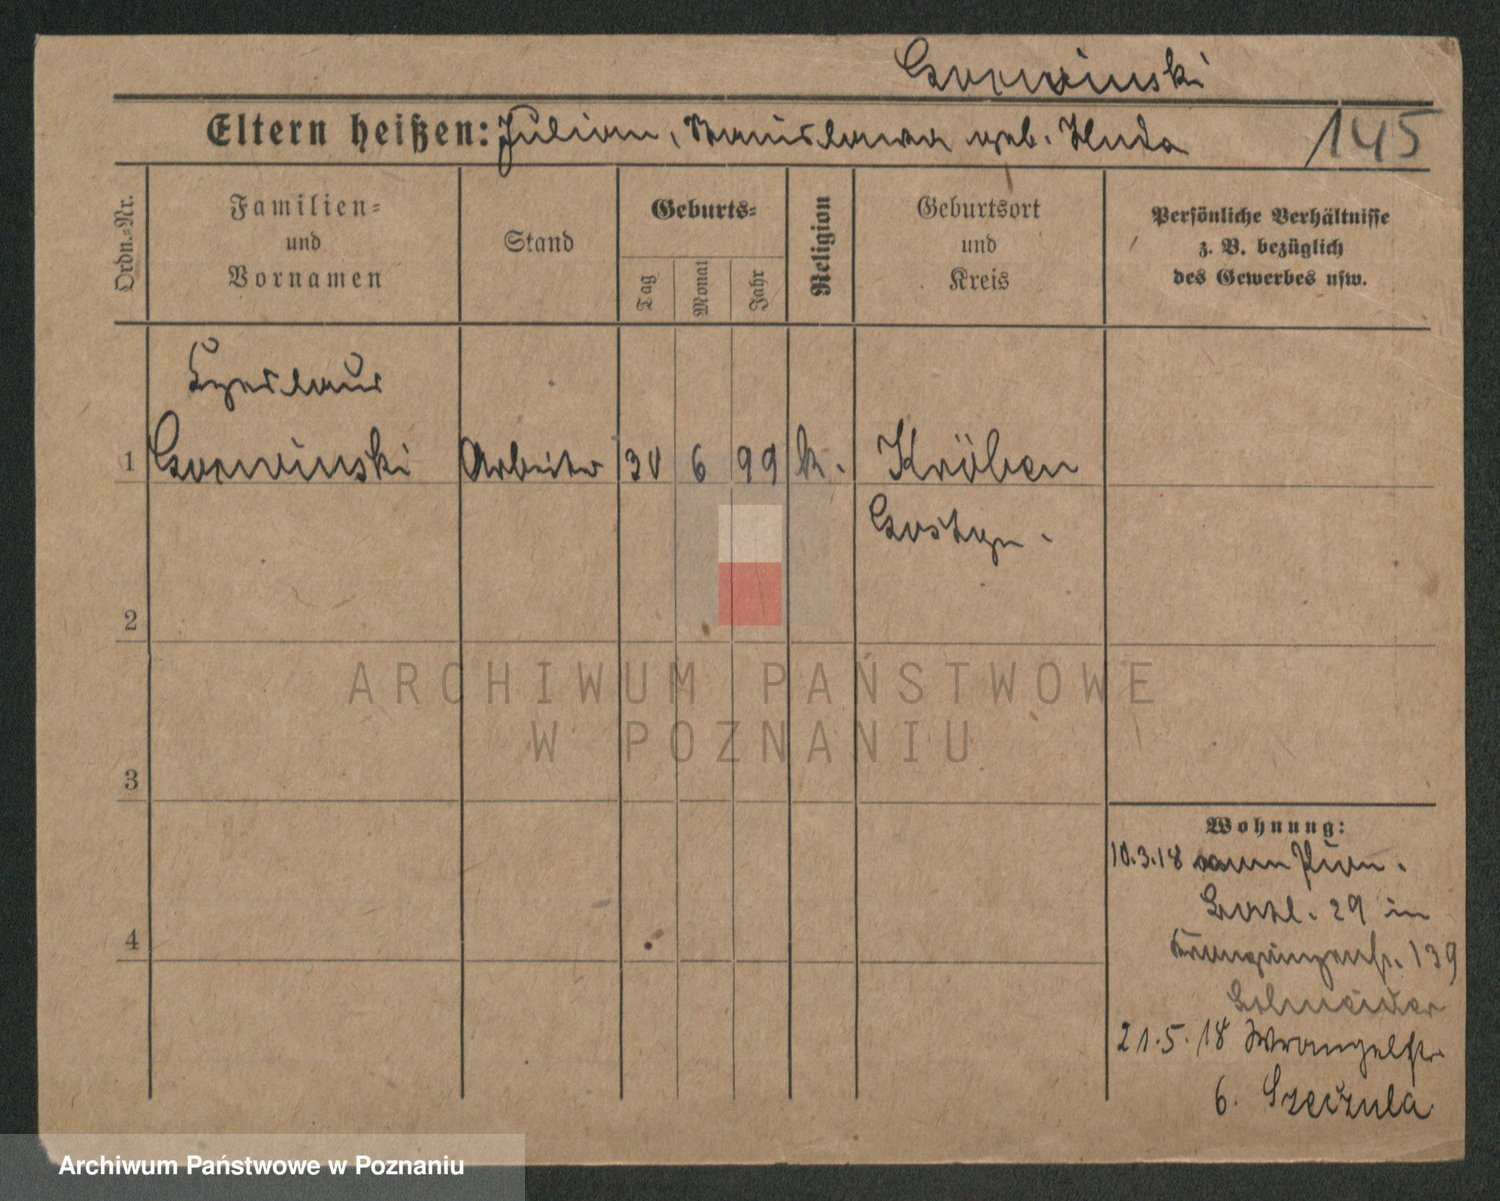 Gorwinski
Eltern heißen: Julian, Stanislawa geb. Huda
145
Ordn.-Nr.
Familien-
und
Vornamen
Stand
Geburts-
Tag
Monat
Jahr
Religion
Geburtsort
und
Kreis
Persönliche Verhältnisse
z. B. bezüglich
des Gewerbes usw.
Czeslaus
1 Gorwinski Arbeiter 30 6 99 k. Kröben
Gostyn.
2
ARCHIWUM PAŃSTWOWE
W POZNANIU
3
4
Wohnung:
10.3.18
29 in
Kronprinzenstr. 139
Schneider
21.5.18 Wrangelstr.
6. Szeczula
Archiwum Państwowe w Poznaniu